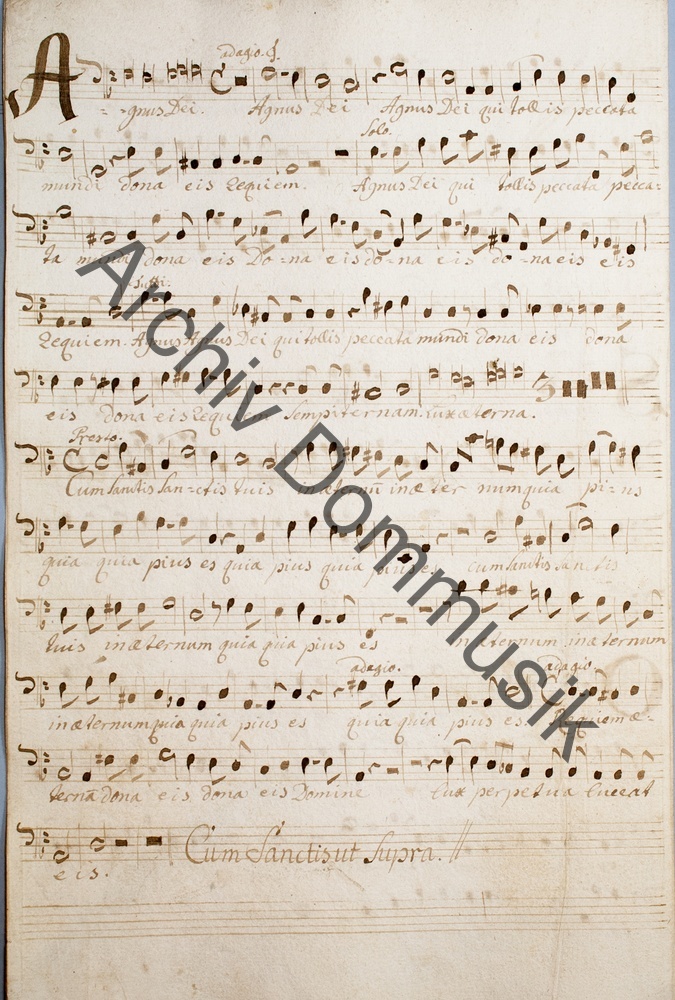 adagio.
A- -gnus Dei. Agnus Dei Agnus Dei qui tollis peccata
Solo.
mundi dona eis Requiem. Agnus Dei qui tollis peccata pecca-
ta mundi dona eis Do-na eis do-na eis do-na eis eis
Tutti.
Requiem. Agnus Agnus Dei qui tollis peccata mundi dona eis dona
eis dona eis Requiem Sempiternam. Lux æterna.
Presto.
Cum Sanctis San-ctis tuis in æternũ in æter num quia pi-us
quia quia pius es quia pius quia pius es cum Sanctis Sanctis
tuis in æternum quia quia pius es in æternum in æternum
adagio. adagio
in æternum quia quia pius es quia quia pius es. Requiem æ-
ternã dona eis dona eis Domine Lux perpetua luceat
eis. Cum Sanctis ut Supra.
Archiv Dommusik